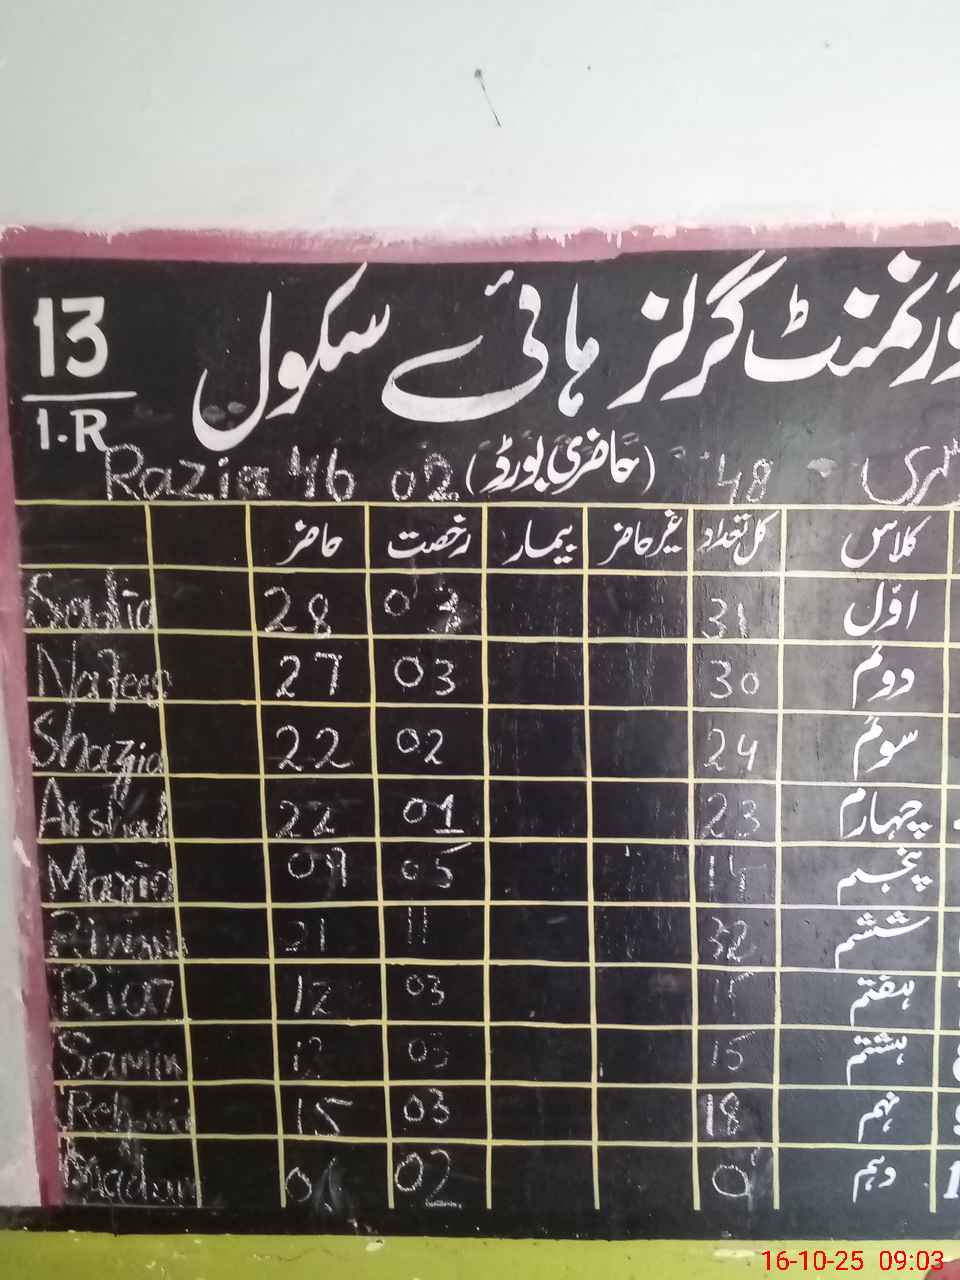 ورنمنٹ گرلز ہائے سکول
13
1.R
48 (حاضری بورڈ) 02 46 Razia
کلاس کل تعداد غیر حاضر بیمار رخصت حاضر
اوّل 31 03 28 Sadia
دوئم 30 03 27
سوئم 24 02 22 Shazia
چہارم 23 01 22 Arshad
پنجم 05 09 Maria
ششم 32 11 21
ہفتم 03 12
ہشتم 15 03
نہم 18 03 15
دہم 02
16-10-25 09:03